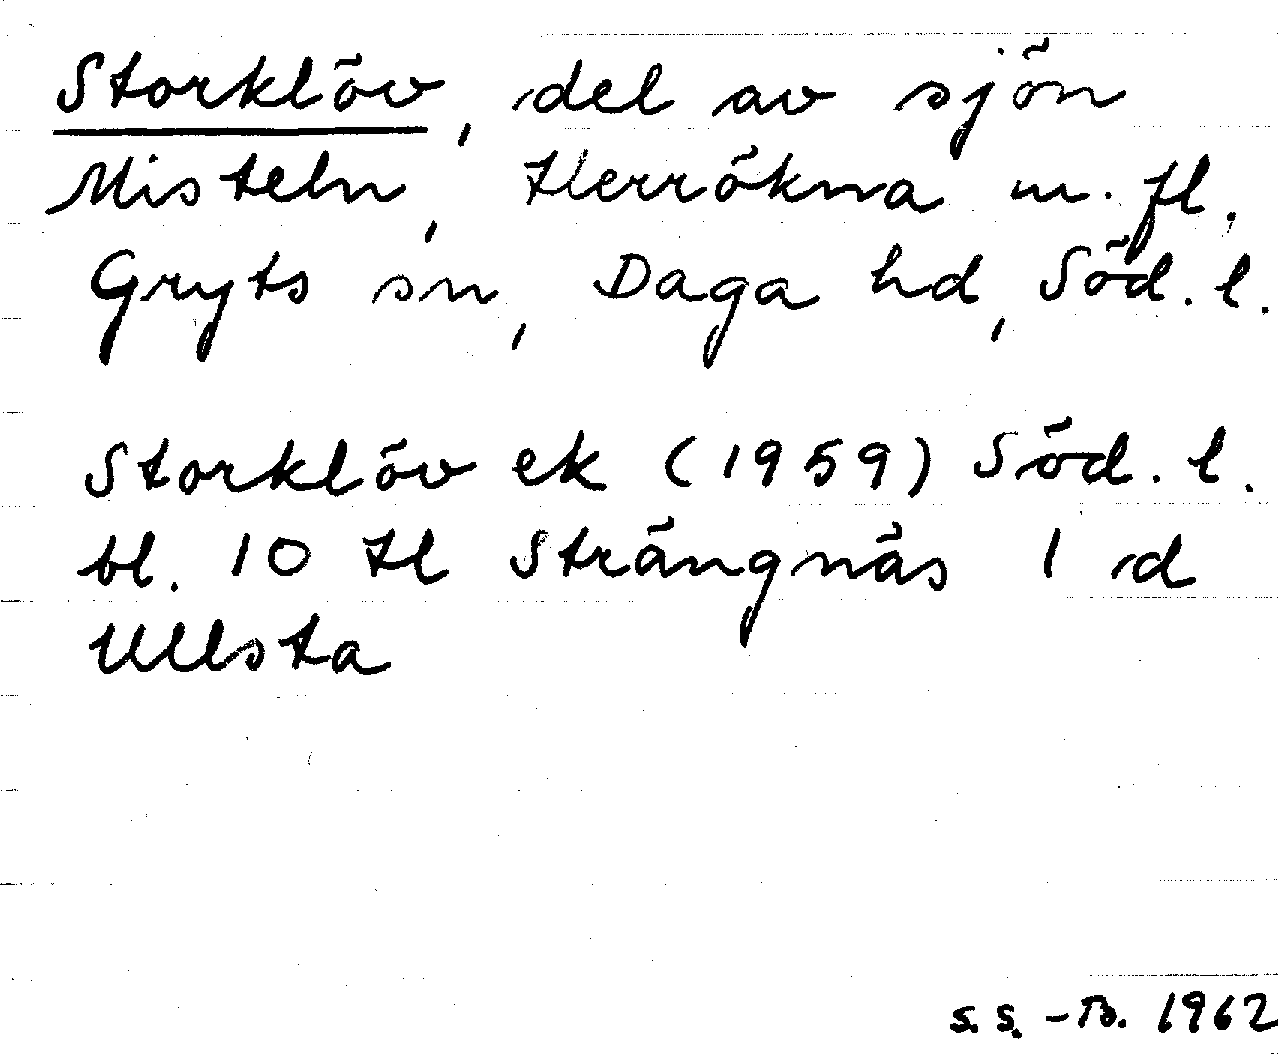 Storklöv, del av sjön
Misteln, Herrökna m. fl.
Gryts sn, Daga hd, Söd. l.
Storklöv ek (1959) Söd. l.
bl. 10 tl Strängnäs 1 d
Ullsta
S. S. -B. 1962